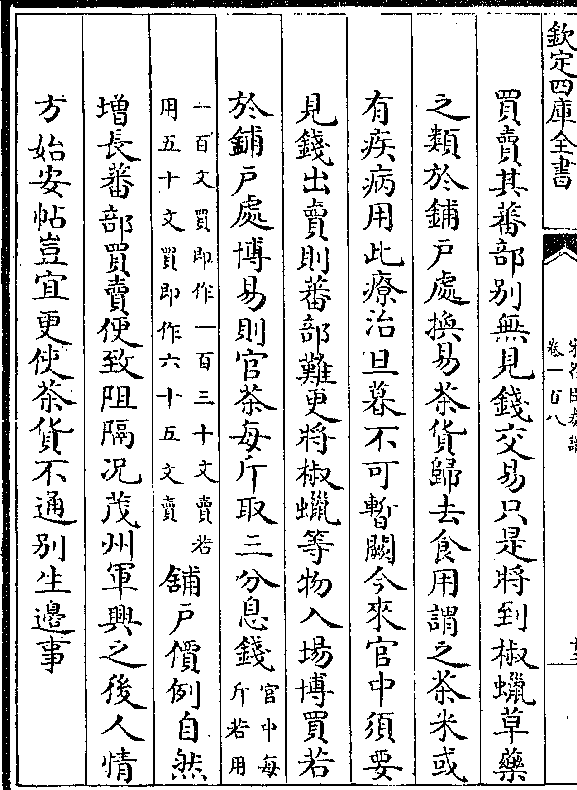 欽定四庫全書
卷一百八
買賣其蕃部别無見錢交易只是將到椒蠟草藥
之類於鋪戸處換易茶貨歸去食用謂之茶米或
有疾病用此療治旦暮不可暫闕今來官中須要
見錢出賣則蕃部難更將椒蠟等物入場博買若
於鋪戸處博易則官茶每斤取三分息錢官中每
斤若用
一百文買即作一百三十文賣若
用五十文買即作六十五文賣舖戸價例自然
增長蕃部買賣便致阻隔况茂州軍興之後人情
方始安帖豈宜更使茶貨不通别生邊事